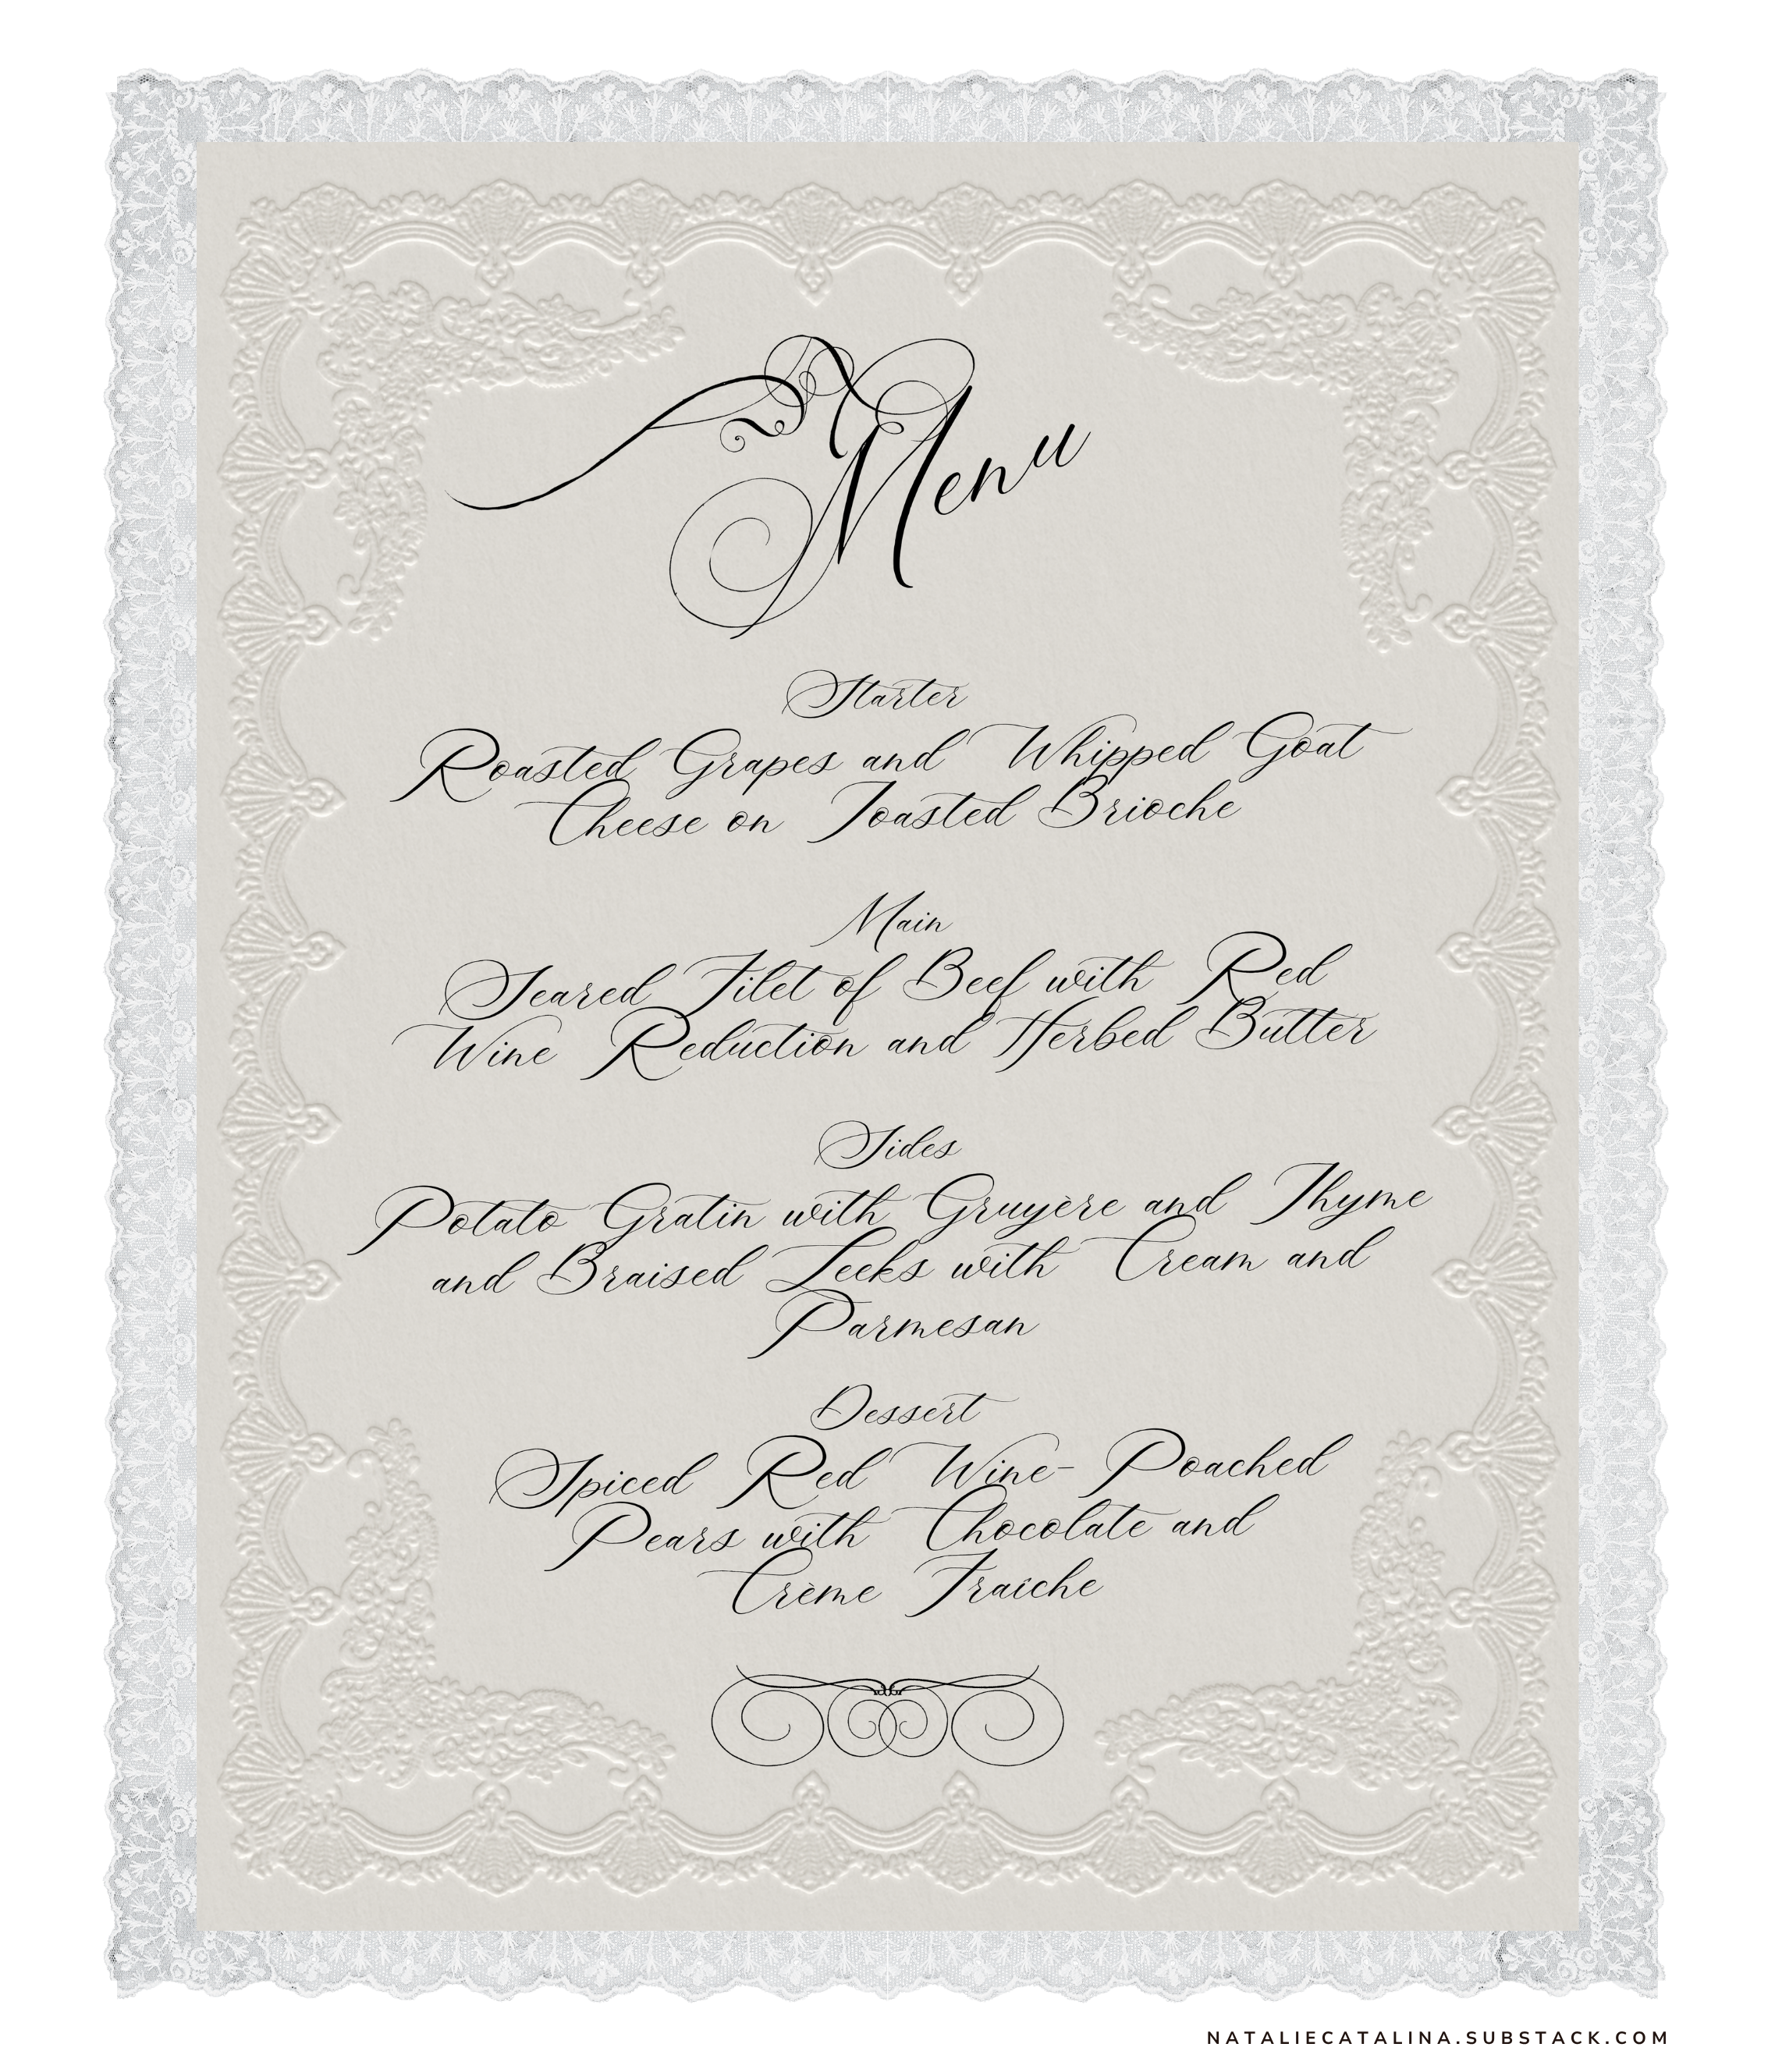 Menu
Starter
Roasted Grapes and Whipped Goat
Cheese on Toasted Brioche
Main
Seared Filet of Beef with Red
Wine Reduction and Herbed Butter
Sides
Potato Gratin with Gruyère and Thyme
and Braised Leeks with Cream and
Parmesan
Dessert
Spiced Red Wine- Poached
Pears with Chocolate and
Crème Fraîche
NATALIECATALINA.SUBSTACK.COM